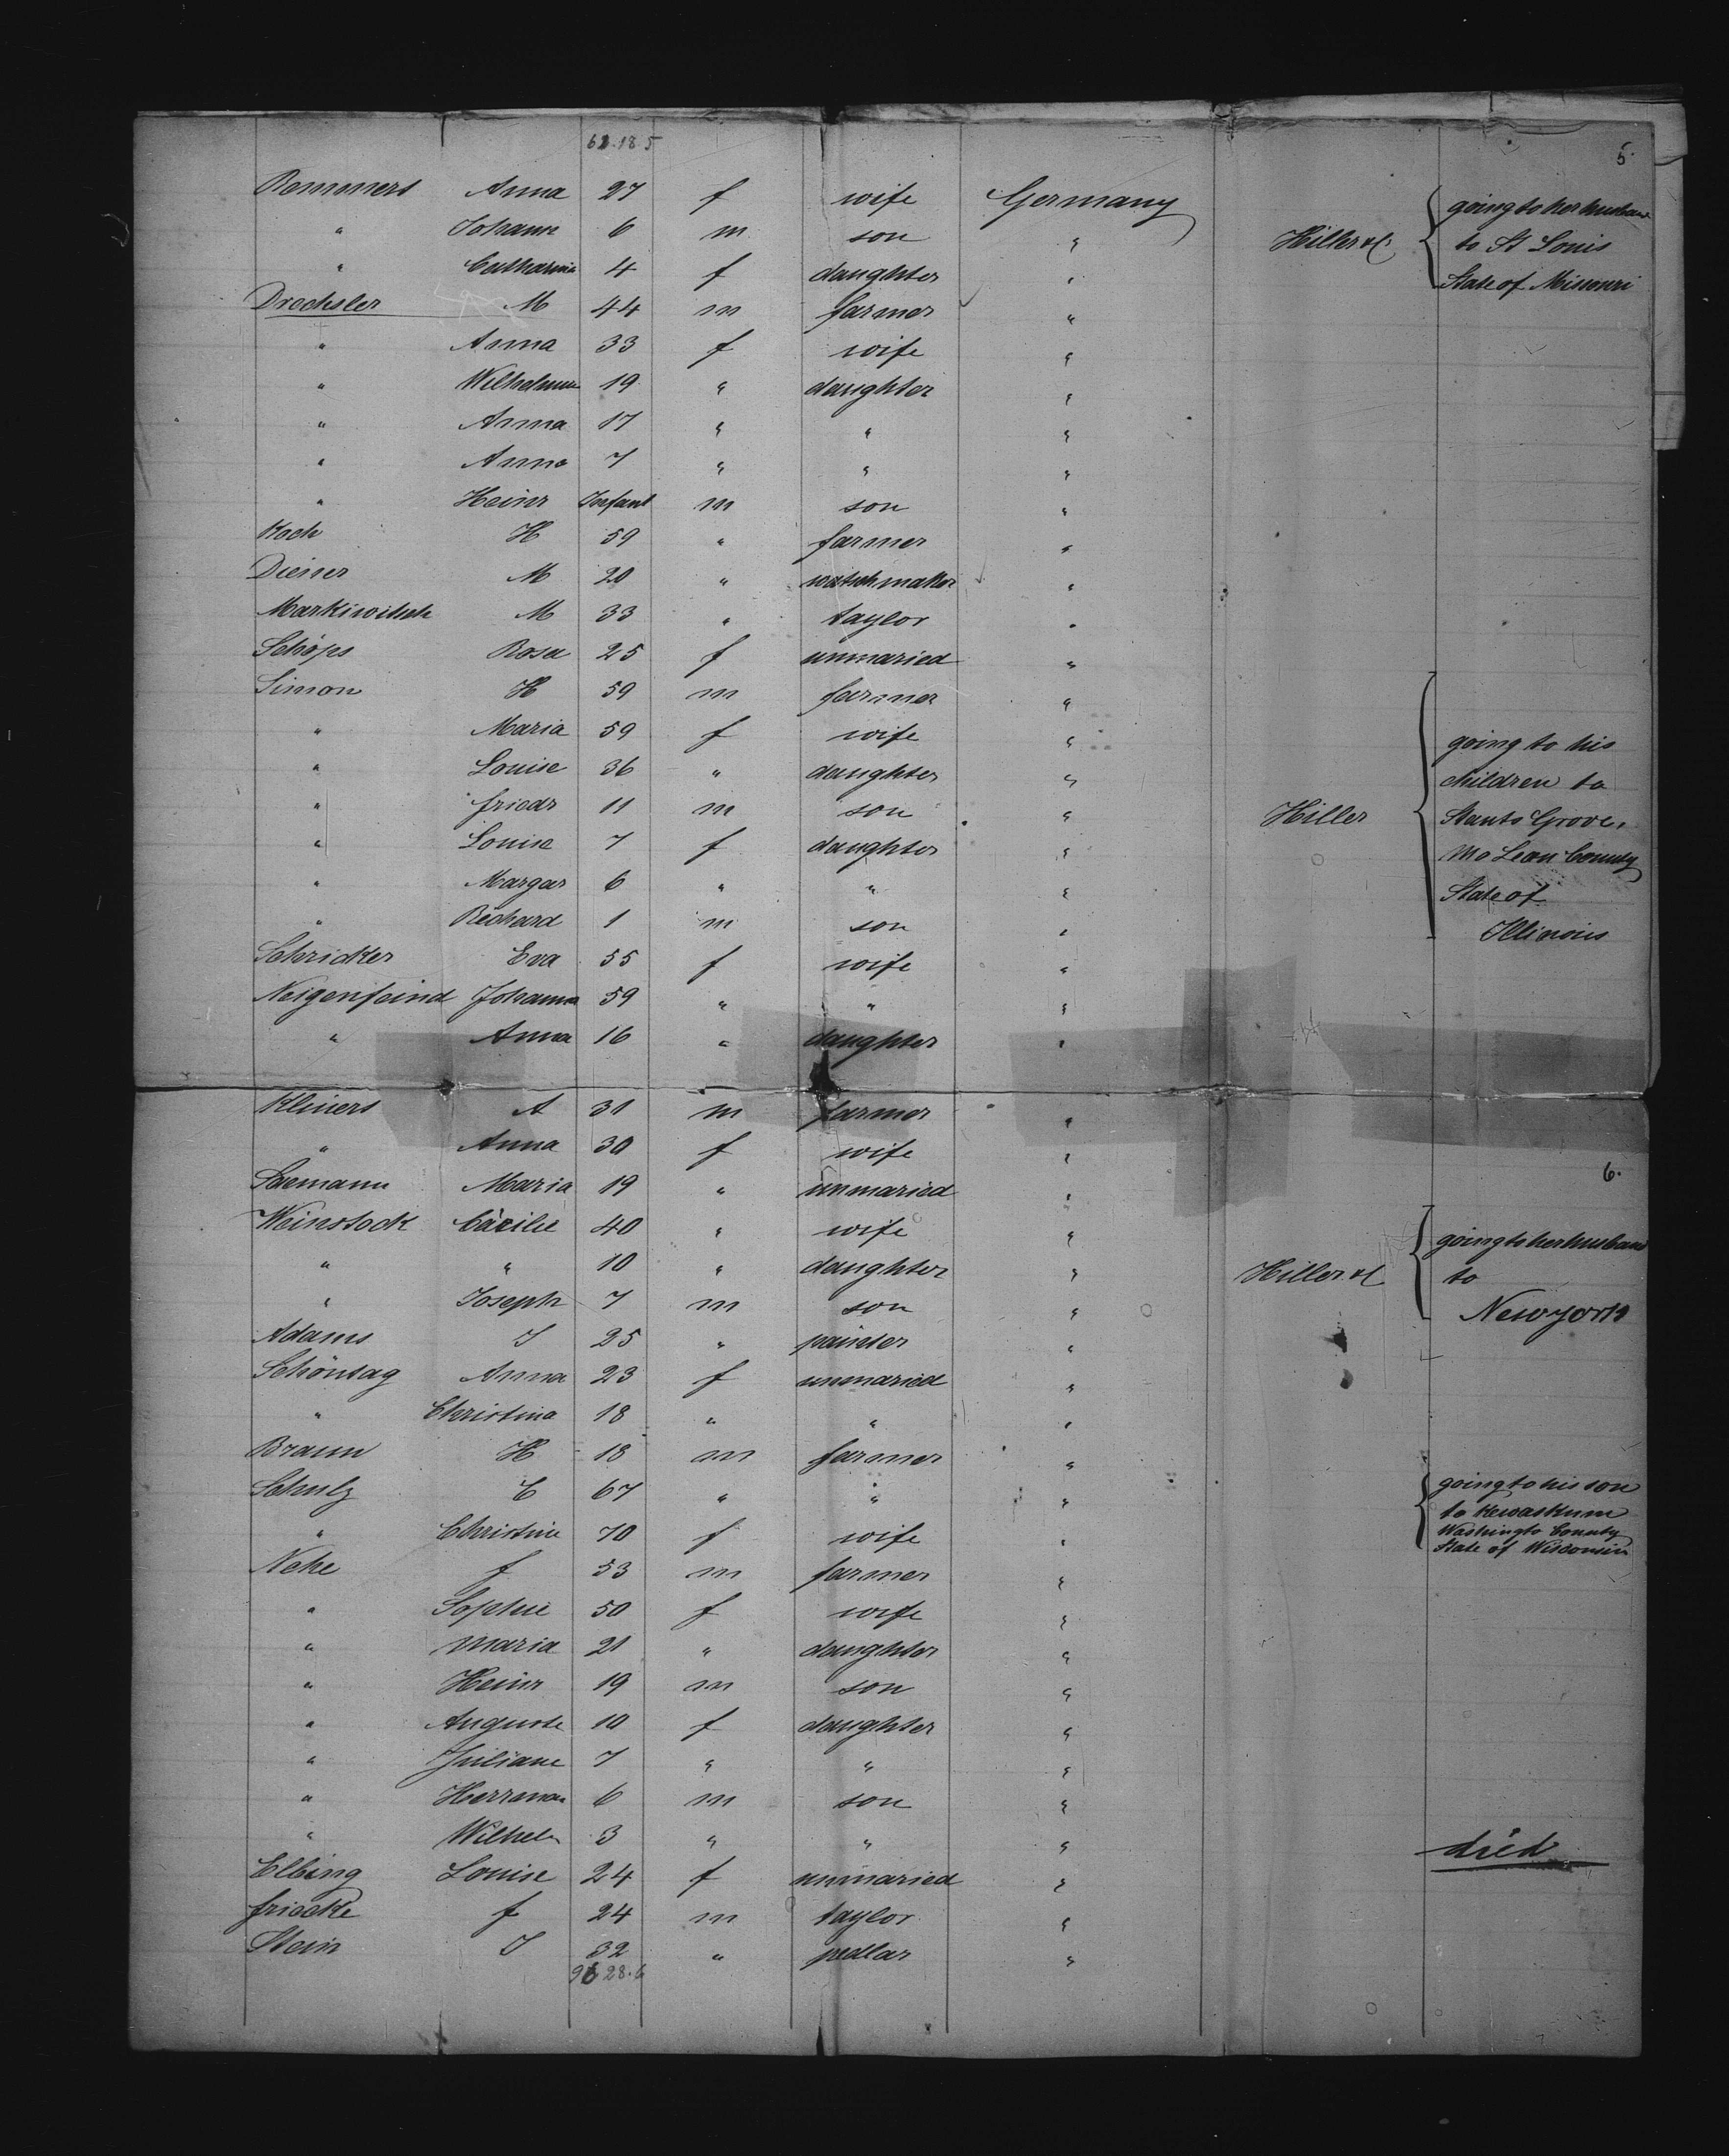 62.18 5
5.
Remmers Anna 27 f wife Germany going to her husband
" Johann 6 m son " Hiller & C to St Louis
" Catharina 4 f daughter " State of Missouri
Drechsler M 44 m farmer "
" Anna 33 f wife "
" Wilhelmine 19 " daughter "
" Anna 17 " " "
" Anna 7 " " "
" Heinr Infant m son "
Koch H 59 " farmer "
Diener M 20 " watchmaker "
Markiwitsch M 33 " taylor "
Schöps Rosa 25 f unmaried "
Simon H 59 m farmer "
" Maria 59 f wife " going to his
" Louise 36 " daughter " children to
" friedr 11 m son " Hiller Stants Grove,
" Louise 7 f daughter " Mc Lean County
" Margar 6 " " " State of
" Richard 1 m son " Illinois
Schricker Eva 55 f wife "
Neigenfeind Johanna 59 " " "
" Anna 16 " daughter "
Kliners A 31 m farmer "
" Anna 30 f wife "
6.
Saemann Maria 19 " unmaried "
Weinstock Cäcilie 40 " wife " going to her husband
" " 10 " daughter " Hiller & C to
" Joseph 7 m son " New york
Adams J 25 " painter "
Schöntag Anna 23 f unmaried "
" Christina 18 " " "
Braun H 18 m farmer "
Schulz C 67 " " " going to his son
to Kewaskum
" Christine 70 f wife " Washingto County
State of Wisconsin
Nehe f 53 m farmer "
" Sophie 50 f wife "
" Maria 21 " daughter "
" Heinr 19 m son "
" Auguste 10 f daughter "
" Juliane 7 " " "
" Herrman 6 m son "
" Wilhelm 3 " " " died
Elbing Louise 24 f unmaried "
friecke f 24 m taylor "
Stein J 32 " pedlar "
96 28.6